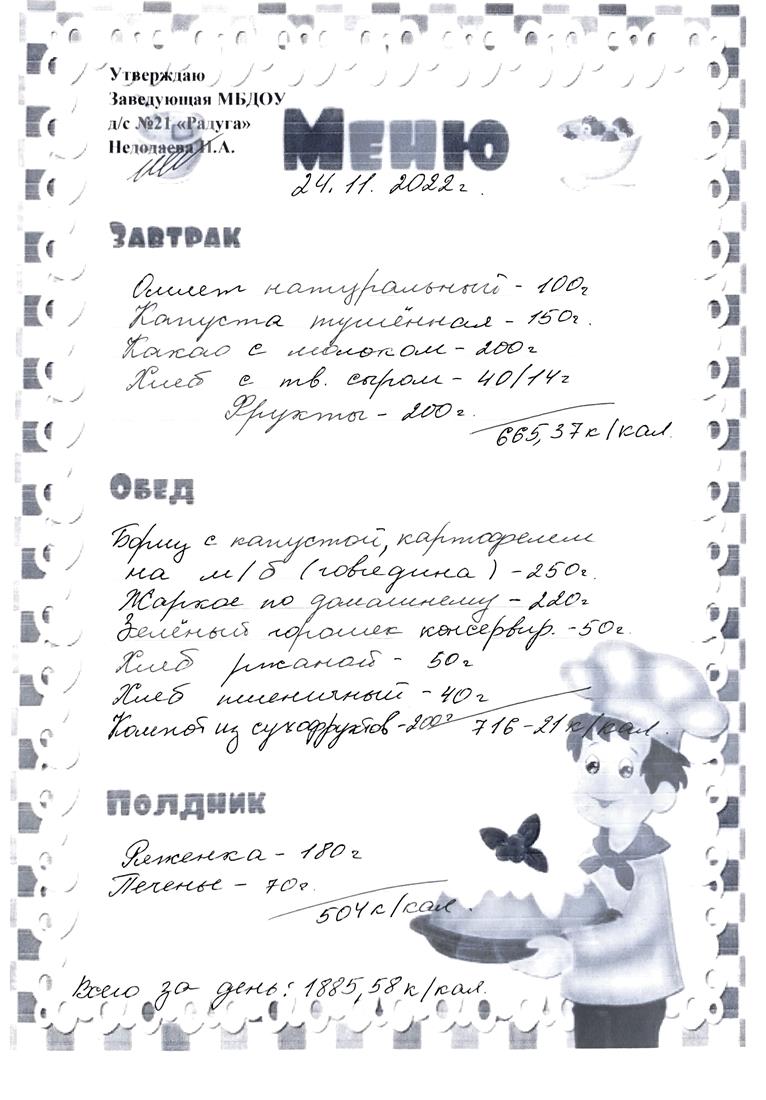 Утверждаю
Заведующая МБДОУ
д/с №21 «Радуга»
Недодаева И.А.
Меню
24. 11. 2022г.
Завтрак
Омлет натуральный - 100г
Капуста тушённая - 150г.
Какао с молоком - 200г
Хлеб с тв. сыром - 40/14г
Фрукты - 200г.
665,37к/кал.
Обед
Борщ с капустой, картофелем
на м/б (говядина) - 250г.
Жаркое по домашнему - 220г
Зелёный горошек консервир. - 50г.
Хлеб ржаной - 50г
Хлеб пшеничный - 40г
Компот из сухофруктов - 200г 716-21к/кал.
Полдник
Ряженка - 180г
Печенье - 70г.
504к/кал.
Всего за день: 1885,58к/кал.